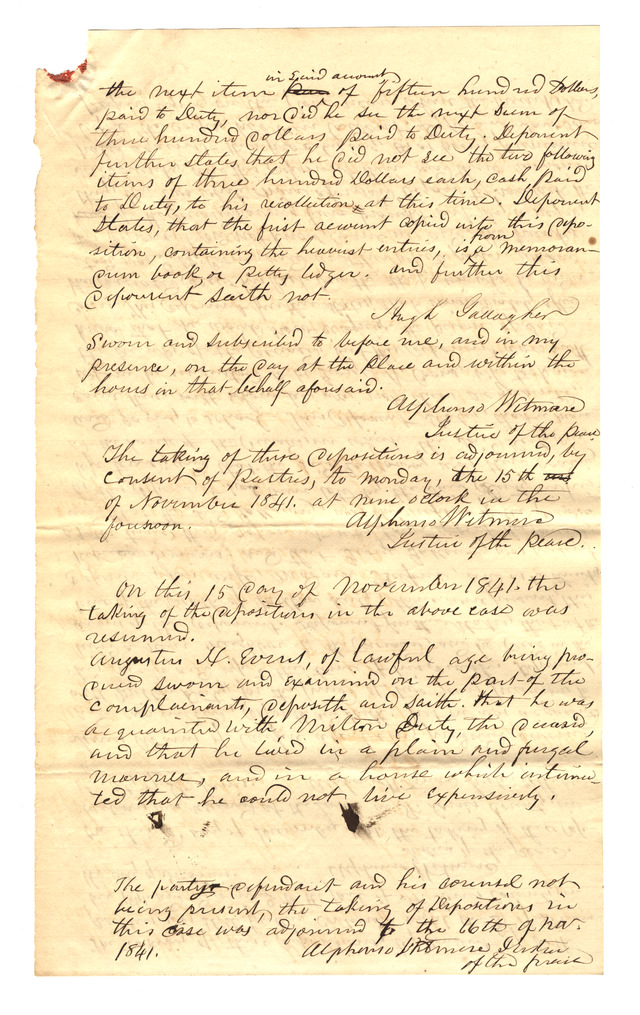 in Said account
the next item of fifteen hundred Dollars,
paid to Duty, nor did he see the next Sum of
three hundred dollars paid to Duty. Deponent
further states that he did not see the two following
items of three hundred Dollars each, cash paid
to Duty, to his recollection at this time. Deponent
States, that the first account copied into this depo-
sition, containing the heaviest entries, is from a memoran-
dum book or Petty ledger. and further this
deponent saith not.
Hugh Gallagher
Sworn and subscribed to before me, and in my
presence, on the day at the place and within the
hours in that behalf aforesaid.
Alphonso Wetmore
Justice of the peace
The taking of these depositions is adjourned, by
Consent of Parties, to monday, the 15th
of November 1841. at nine oclock in the
forenoon. Alphonso Wetmore
Justice of the Peace.
On this 15 day of November 1841. the
taking of the depositions in the above case was
resumed.
Augustus H. Evens, of lawful age being pro-
duced sworn and examined on the part of the
Complainants, deposeth and saith. that he was
acquainted with Milton Duty, the deceased,
and that he lived in a plain and frugal
manner, and in a house which intima-
ted that he could not live expensively.
The party defendant and his counsel not
being present, the taking of Depositions in
this case was adjourned to the 16th of Nov.
1841. Alphonso Wetmore Justice
of the peace